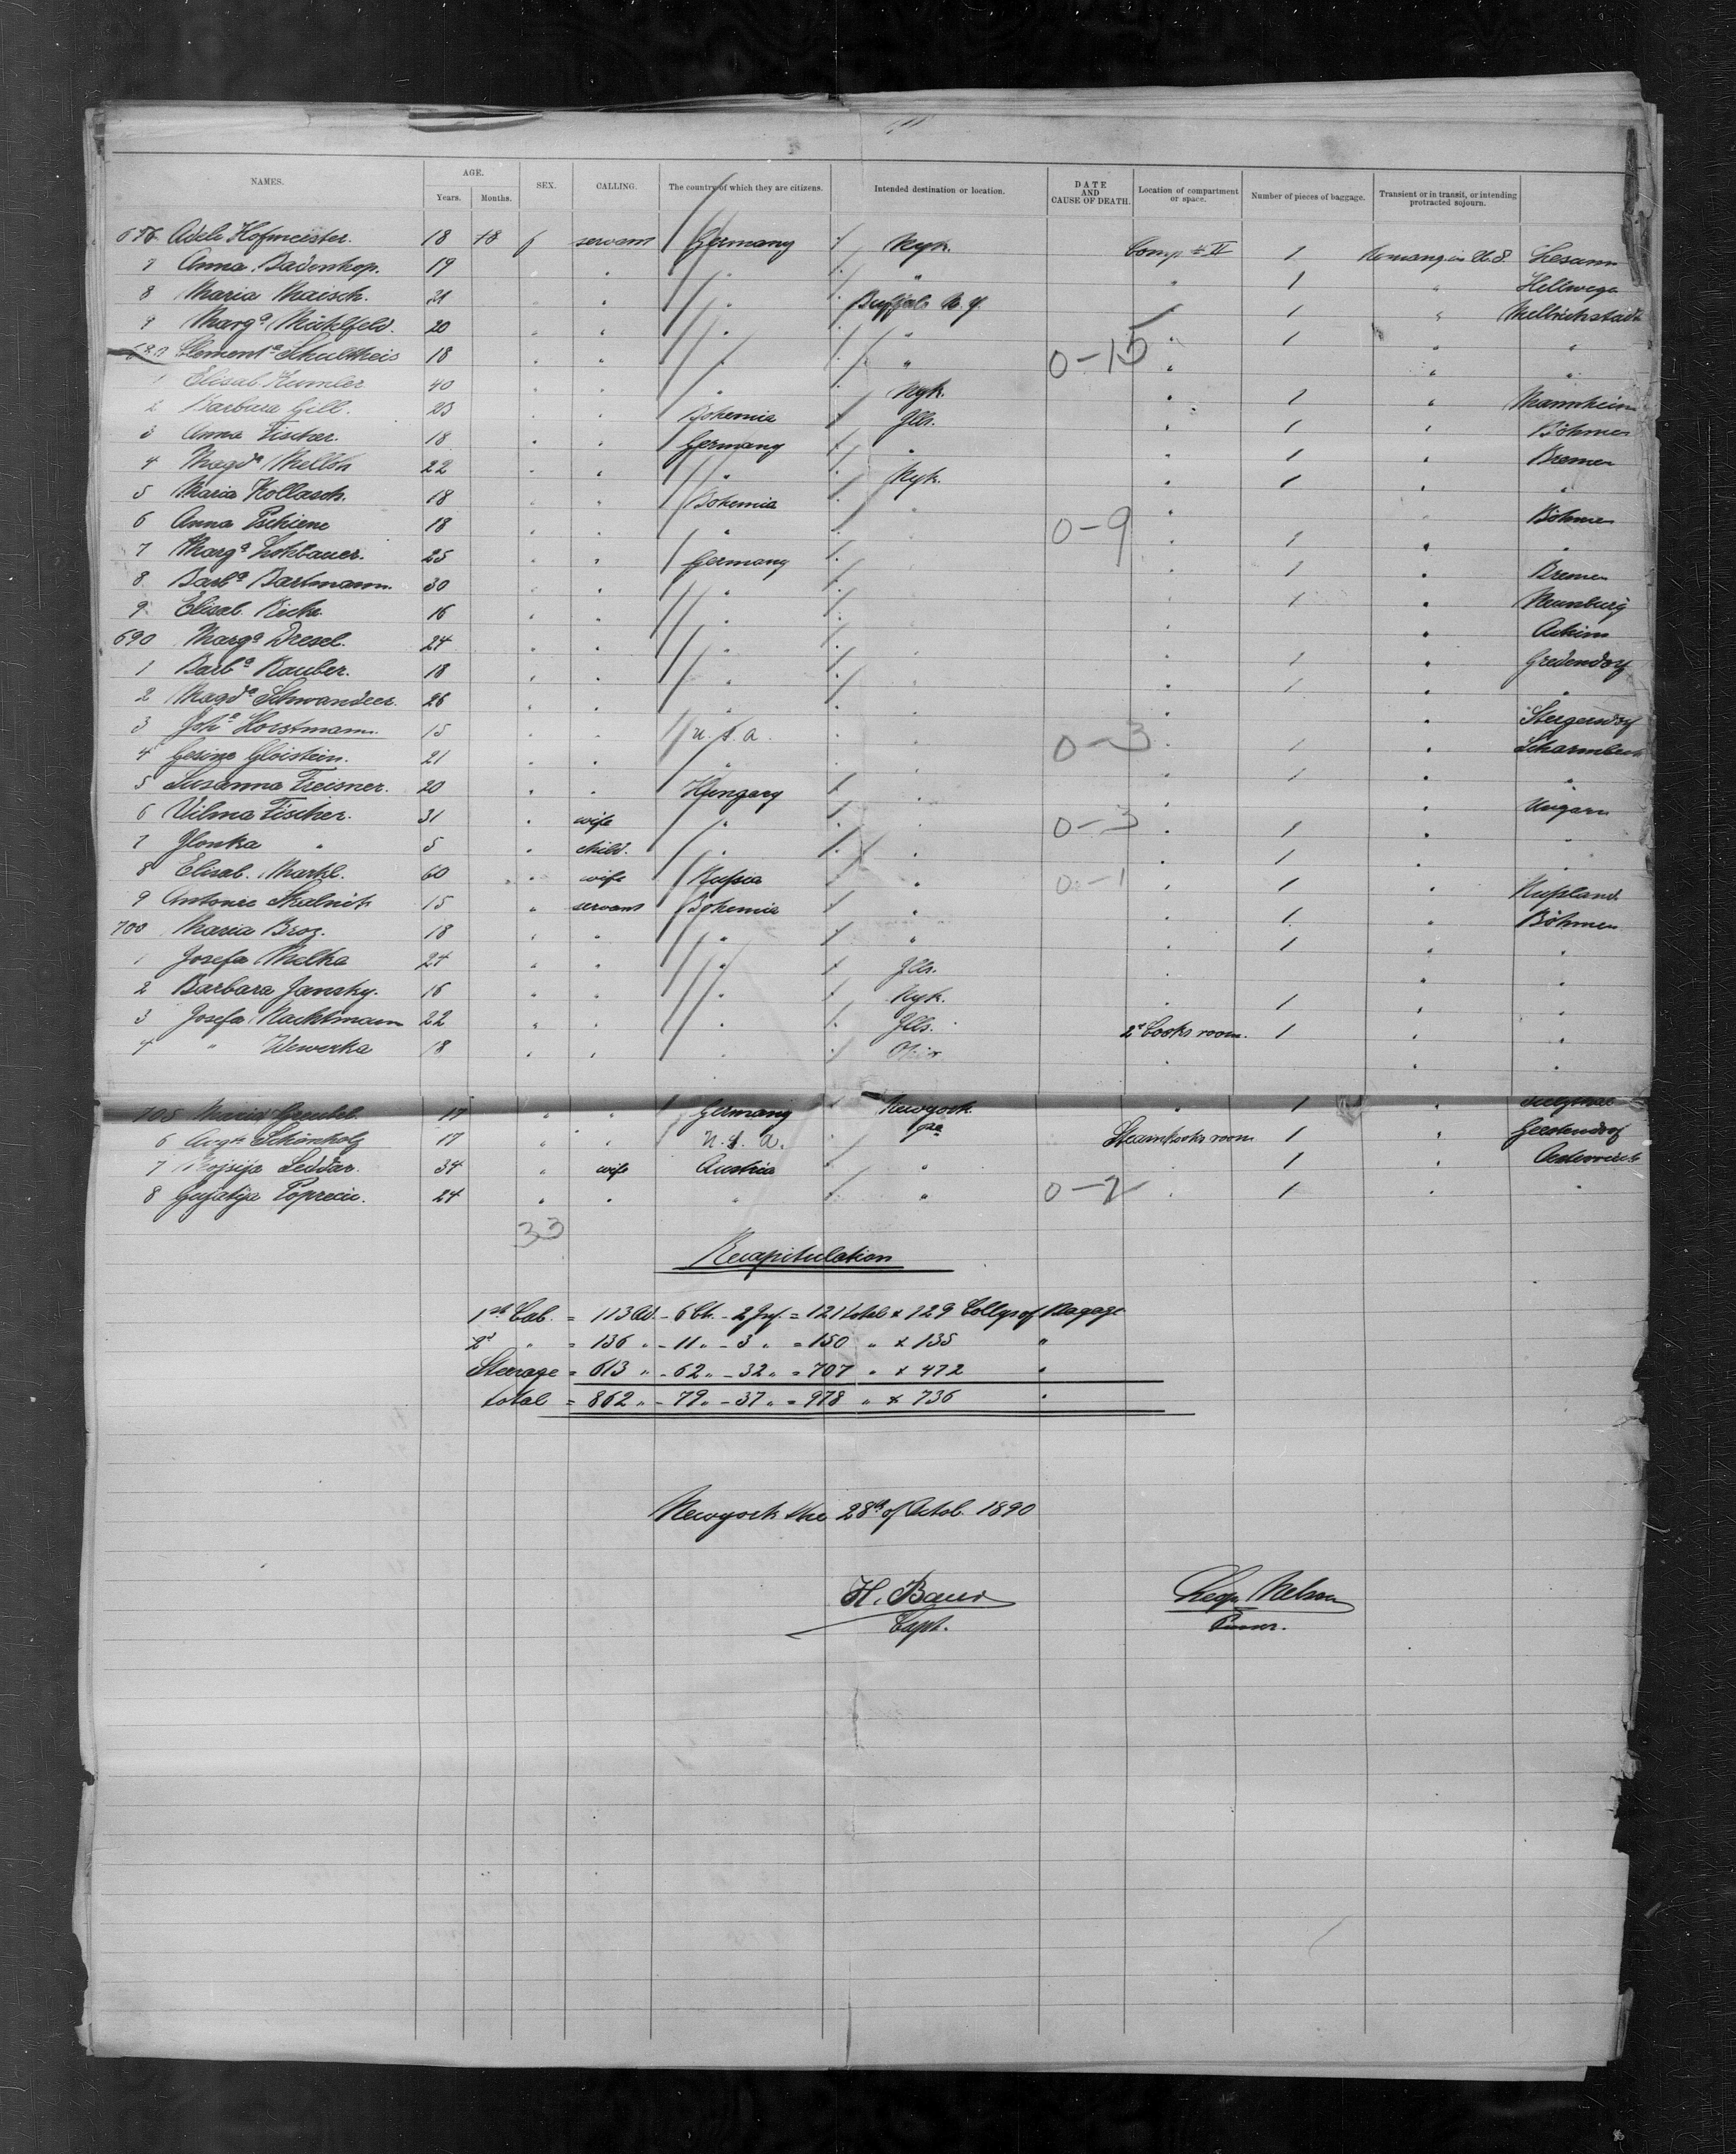 NAMES. AGE. Years. Months. SEX. CALLING. The country of which they are citizens. Intended destination or location. DATE AND CAUSE OF DEATH. Location of compartment or space. Number of pieces of baggage. Transient or in transit, or intending protracted sojourn.
676 Adele Hofmeister. 18 f servant Germany Nyk. Comp # II 1 Remang in U.S. Lesum
7 Anna Badenhop. 19 " " " 1 " Hellwege
8 Maria Maisch. 21 " " " Buffalo N.Y. 1 " Mellrichstadt
9 Marga Mühlfeld. 20 " " " " " 1 " "
680 Clementa Schultheis 18 " " " " 0-15 " " "
1 Elisab. Kumler 40 " " " Nyk. " 1 " Mannheim
2 Barbara Gill. 23 " " Bohemia Ills. " 1 " Böhmen
3 Anna Fischer. 18 " " Germany " " 1 " Bremen
4 Magda Melloh 22 " " " Nyk. " 1 " "
5 Maria Kollasch. 18 " " Bohemia " " Böhmen
6 Anna Pschiene 18 " " " 0-9 " 1 " "
7 Marga Lohbauer. 25 " " Germany " 1 " Bremen
8 Barba Bartmann. 30 " " " 1 " Neunburg
9 Elisab. 16 " " " " " Achim
690 Marga Dresel. 24 " " " " 1 " Gredendorf
1 Barba Rauber. 18 " " " " 1 " "
2 Magda Schwandner. 26 " " " " "
3 Joha Horstmann. 15 " " U.S.A. " 0-3 " 1 " Scharmbeck
4 Gesine Gloistein. 21 " " " " 1 " "
5 Susanna Treisner. 20 " " Hungary " " " Ungarn
6 Vilma Fischer. 31 " wife " " 0-3 " 1 " "
7 Ilonka " 5 " child. " " " 1 " "
8 Elisab. Markl. 60 " wife Russia " 0-1 " 1 " Russland.
9 Antonie Skalnik 15 " servant Bohemia " " 1 " Böhmen
700 Maria Broz. 18 " " " " " 1 " "
1 Josefa Melka 24 " " " Ills. " " "
2 Barbara Jansky. 16 " " " Nyk. " 1 " "
3 Josefa Nachtmann 22 " " " Ills. 2d Cooks room. 1 " "
4 " Wewerka 18 " " " " " "
705 Maria 17 " " Germany Newyork " 1 "
6 Schönholz 17 " " U.S.A. Steamcooks room 1 "
7 Leddar. 34 " wife Austria " 1 "
8 24 " " " " 0-2 " 1 " "
33
Recapitulation
1st Cab. = 113 Ad. - 6 Ch. - 2 Inf. = 121 total & 129 Collys of Bagage
2d " = 136 " - 11 " - 3 " = 150 " & 135 "
Steerage = 613 " - 62 " - 32 " = 707 " & 472 "
total = 862 " - 79 " - 37 " = 978 " & 736 "
Newyork the 28th of Octob. 1890
H. Baur
Capt.
Leop. Nelson
Purser.